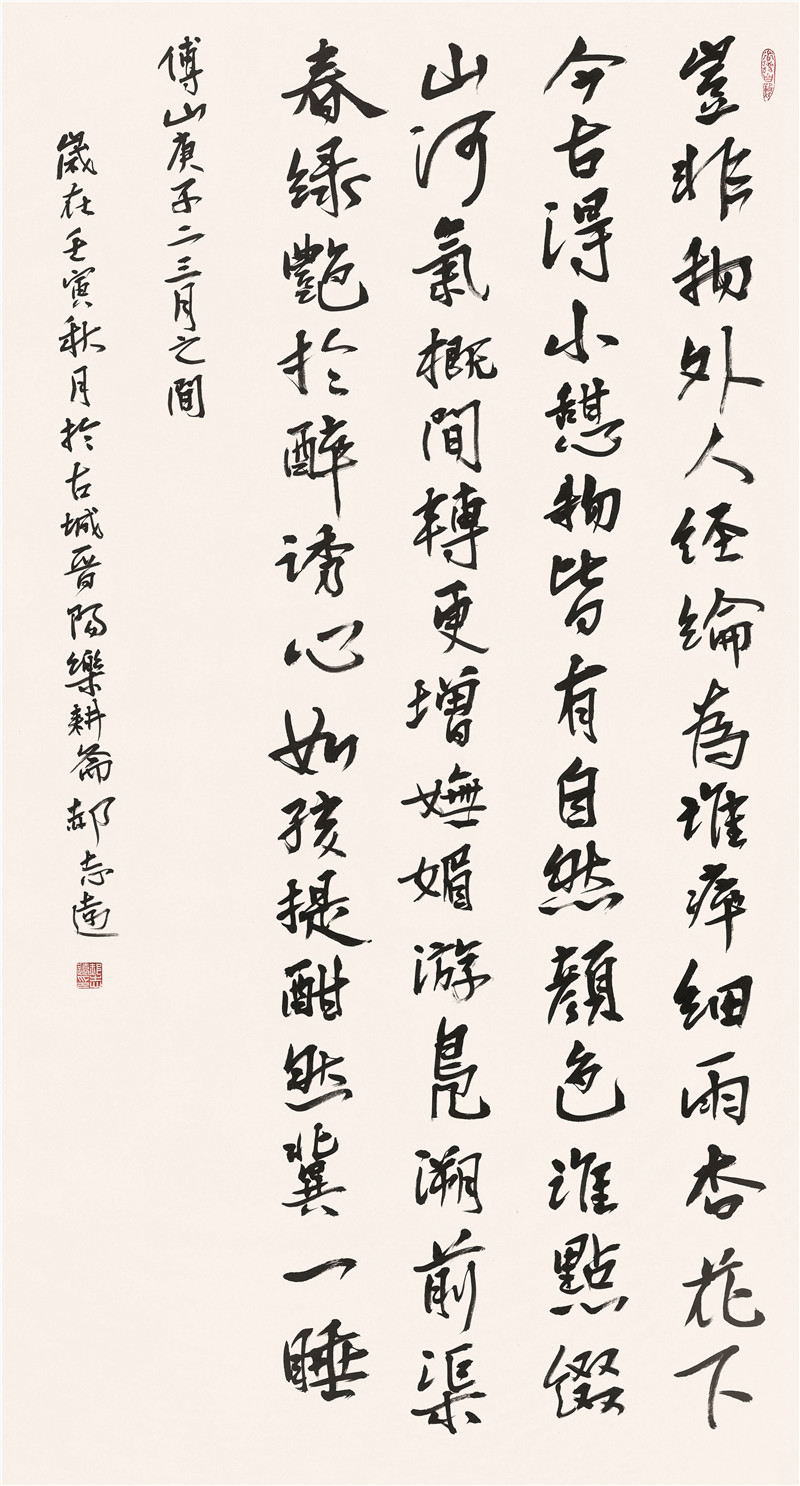 豈非物外人经綸為誰瘁細雨杏花下
今古得小憩物皆有自然顏色誰點綴
山河氣概間轉更增嫵媚游鳧溯前渠
春绿艷於醉诱心如孩提酣然冀一睡
傅山庚子二三月之間
歲在壬寅秋月於古城晋陽樂耕斋郝志遠